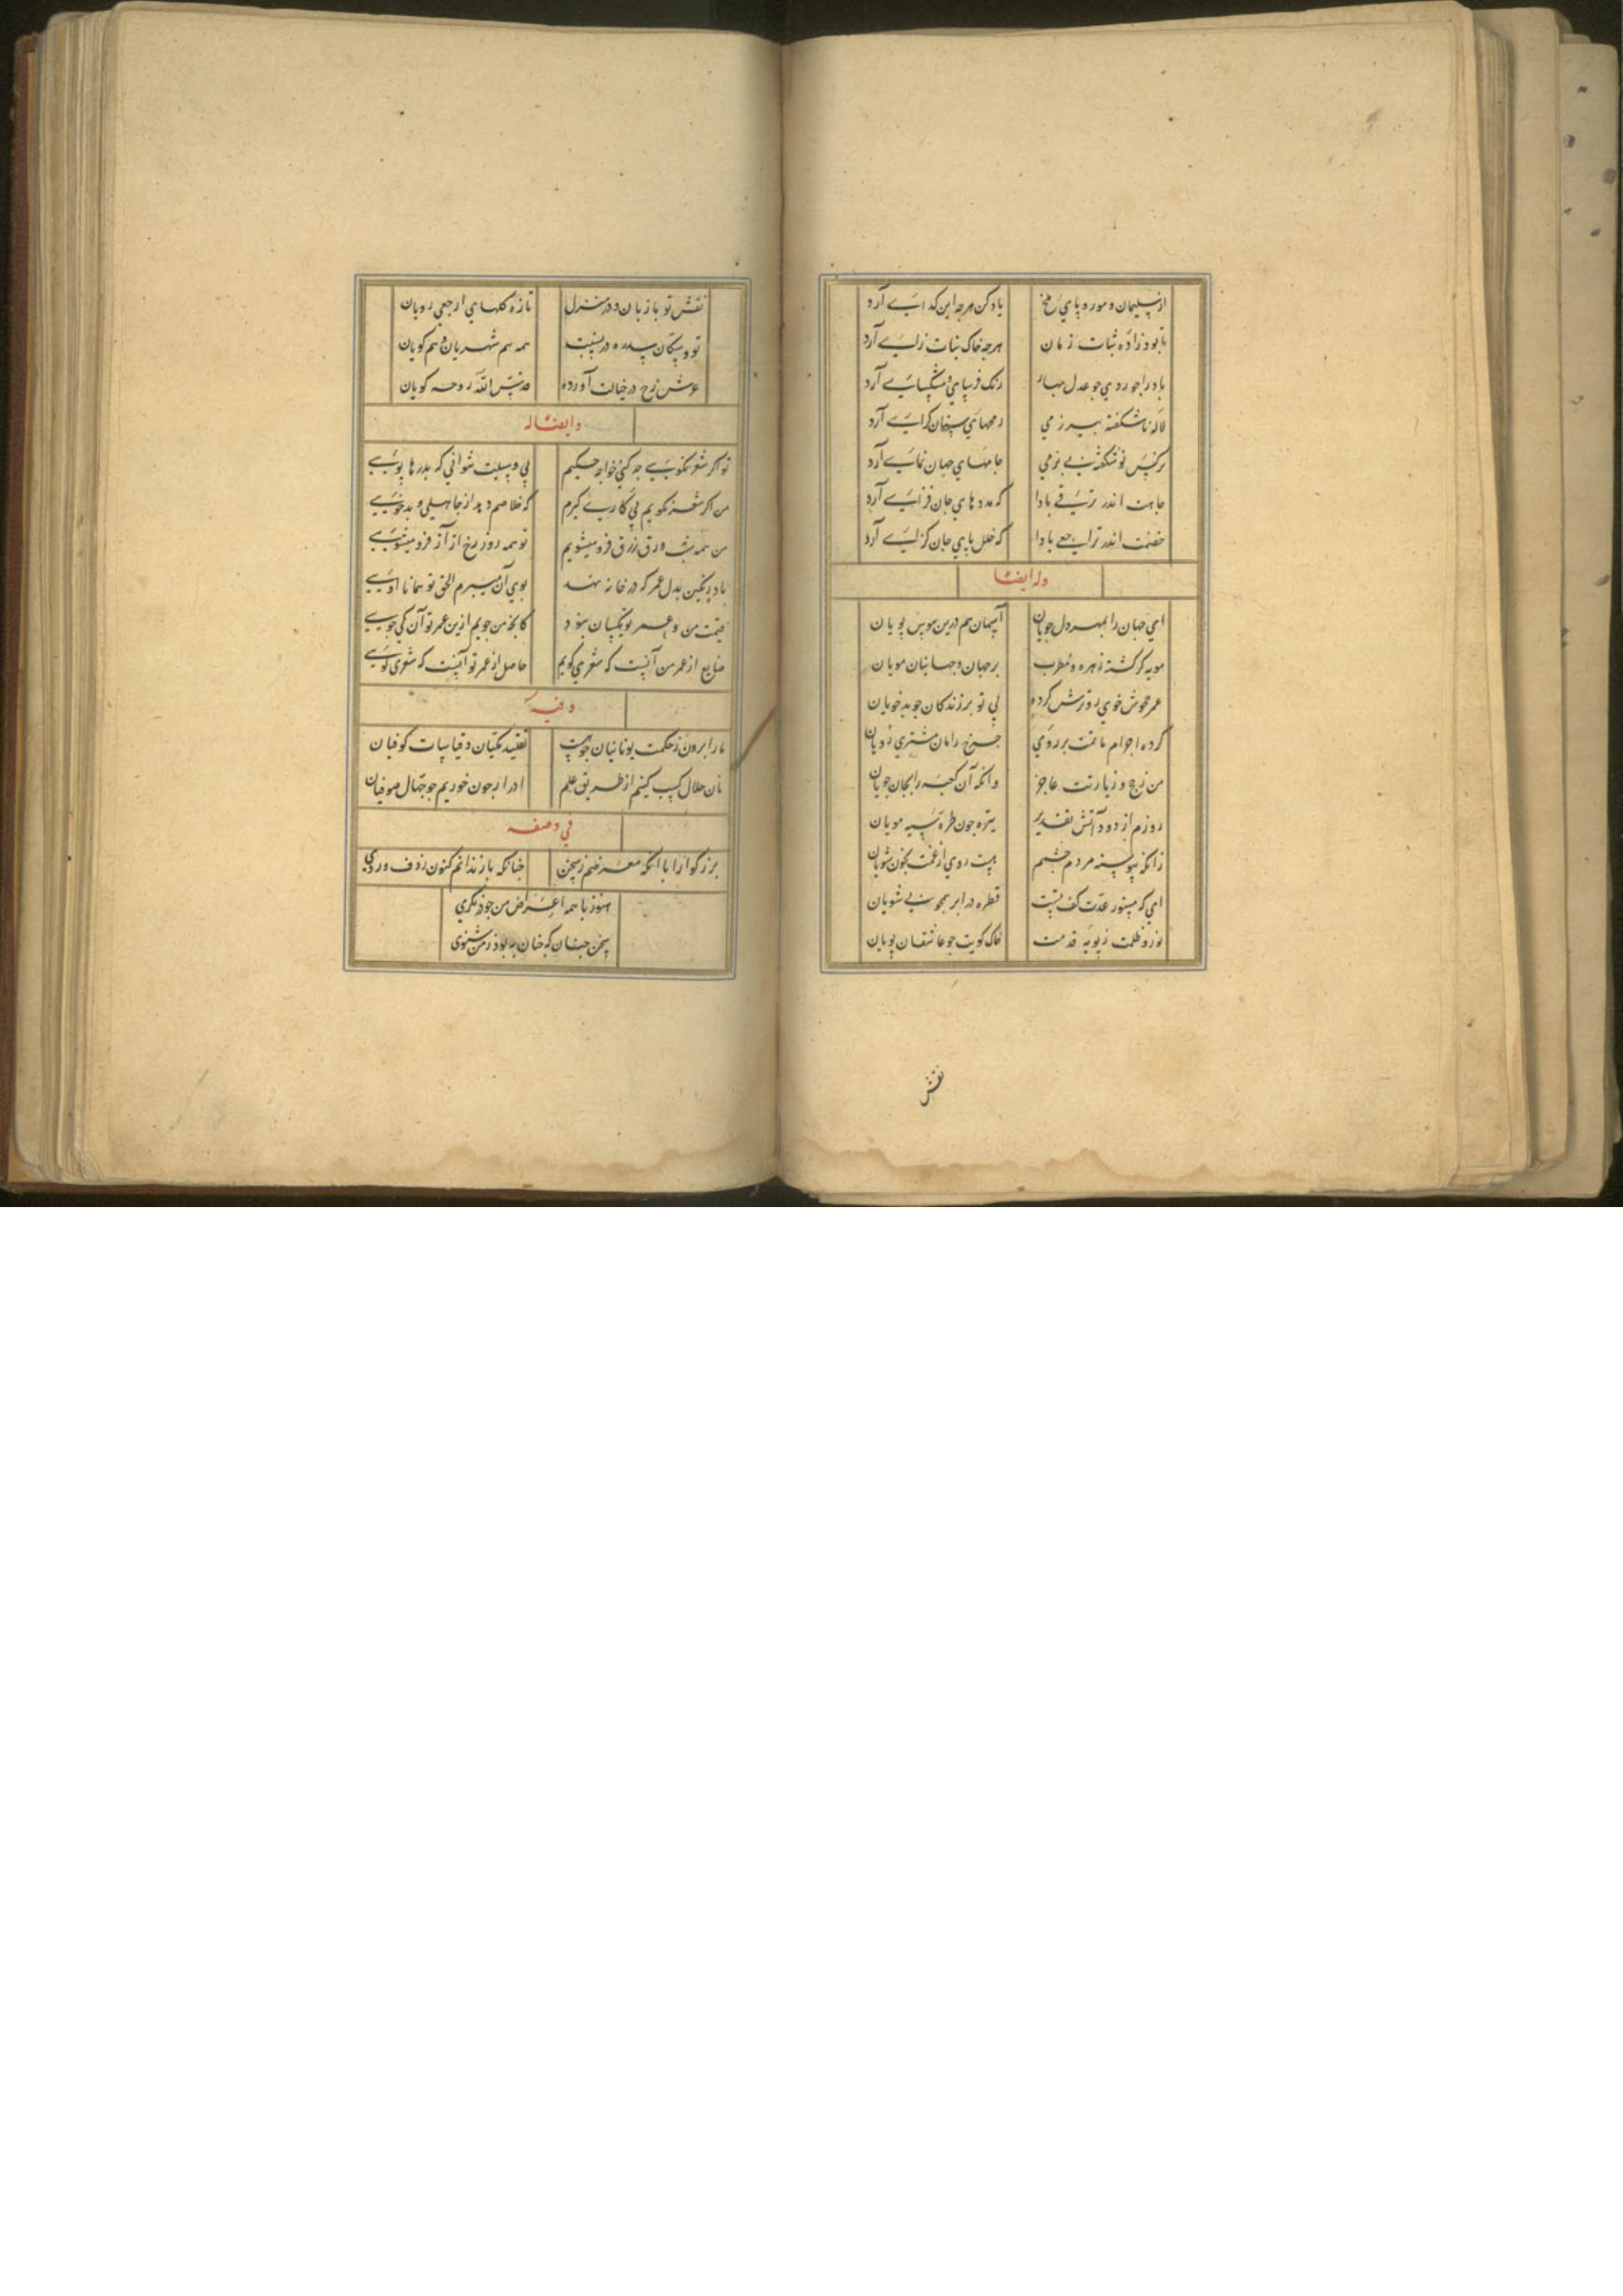 از سلیمان و مور و پای ملخ یاد کن هرچه این گدایے آرد
تا بود زاده ثبات زمان هرجه خاک نبات زایے آرد
باد را جوردی جو عدل بهار رنک فرسایی و مشکسایے آرد
لاله ناشکفته بیرزمی رمحهای سخنان کرایے آرد
نرکس نوشکفته نی بزمی جامهای جهان نمایے آرد
جاهت اندر ترقے بادا که مددهای جان فزایے آرد
خصمت اندر تراجعے بادا که خللهای جان کزایے آرد
وله ایضا
ای جهان را بمهر دل جویان آسمان هم درین هوس پویان
مویه کر کشته زهره مطرب بر جهان و جهانیان مویان
عمر خوش خوی رو ترش کرده بی تو بر زندکان جو بدخویان
کرده اجرام ماتمت بر روی جرخ رامان مشتری رویان
من ز حج و زیارتت عاجز وانکه آن کعبه را بجان جویان
روزم از دود آتش تقدیر تیره جون طره سیه مویان
زانکه پیوسته مردم جشمم هست روی از غمت بخون شویان
ای که مستور عدت کفنست قطره در ابر همجو نی شویان
نور و ظلمت ز پویه قدمت خاک کویت جو عاشقان پویان
نقش
نقش تو باز بان و در منزل تازه کلهای ارجعی رویان
تو و سکان سدره در نسبت همه هم شهریان و هم کویان
عرش نرخ در خیالت آورده قدس الله روحه کویان
وایضا له
تو اکر شعر نکویی جه کنی خواجه حکیم بی وسیلت نتوانی که بدرها پویی
من اکر شعر نکویم پی کاری کیرم که خلاصم دهد از جاهلی و بدخویی
من همه شب ورق زرق فرو میشویم تو همه روز رخ از آز فرو میشویی
باد رنکین بدل عمر که در خانه نهند بوی آن میبرم الحق تو همانا اویی
قیمت من و عمر تو یکسان نبود کانچه من جویم ازین عمر تو آن کی جویی
ضایع از عمر من آنست که شعری کویم حاصل از عمر تو آنست که شعری کویی
وفیه
ما را برون ز حکمت یونانیان جو هست تقلید مکیان و قیاسات کوفیان
نان حلال کسب کنیم از طریق علم ادرار جون خوریم جو جهال صوفیان
فی وصفه
بزرکوارا با آنکه معرضم ز سخن جنانکه باز ندانم کنون ردف و روی
هنوز با همه اعراض من جو درنکری
سخن جنان که جنان به بود ز من شنوی